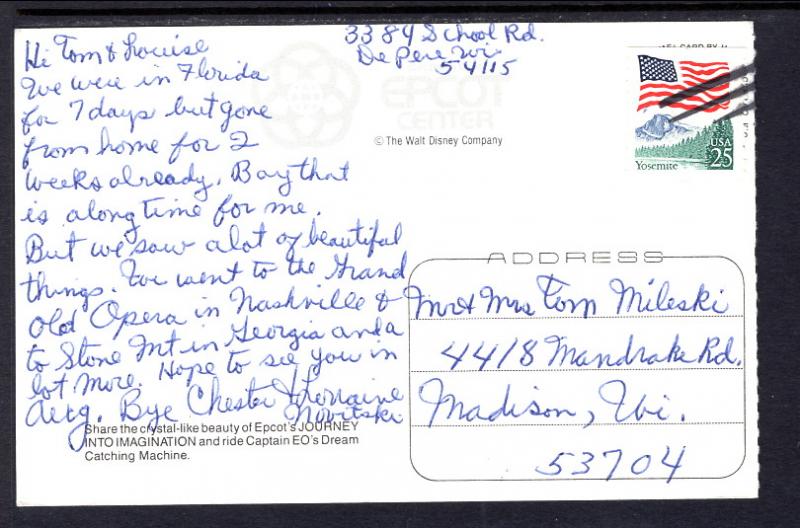 3384 School Rd.
De Pere Wi
54115
Hi Tom & Louise
We were in Florida
for 7 days but gone
from home for 2
weeks already. Boy that
is a long time for me.
But we saw a lot of beautiful
things. We went to the Grand
Old Opera in Nashville &
to Stone Mt in Georgia and a
lot more. Hope to see you in
Aug. Bye Chester & Lorraine
Novitski
EPCOT
CENTER
© The Walt Disney Company
USA
25
Yosemite
ADDRESS
Mr & Mrs Tom Mileski
4418 Mandrake Rd.
Madison, Wi.
53704
Share the crystal-like beauty of Epcot's JOURNEY
INTO IMAGINATION and ride Captain EO's Dream
Catching Machine.